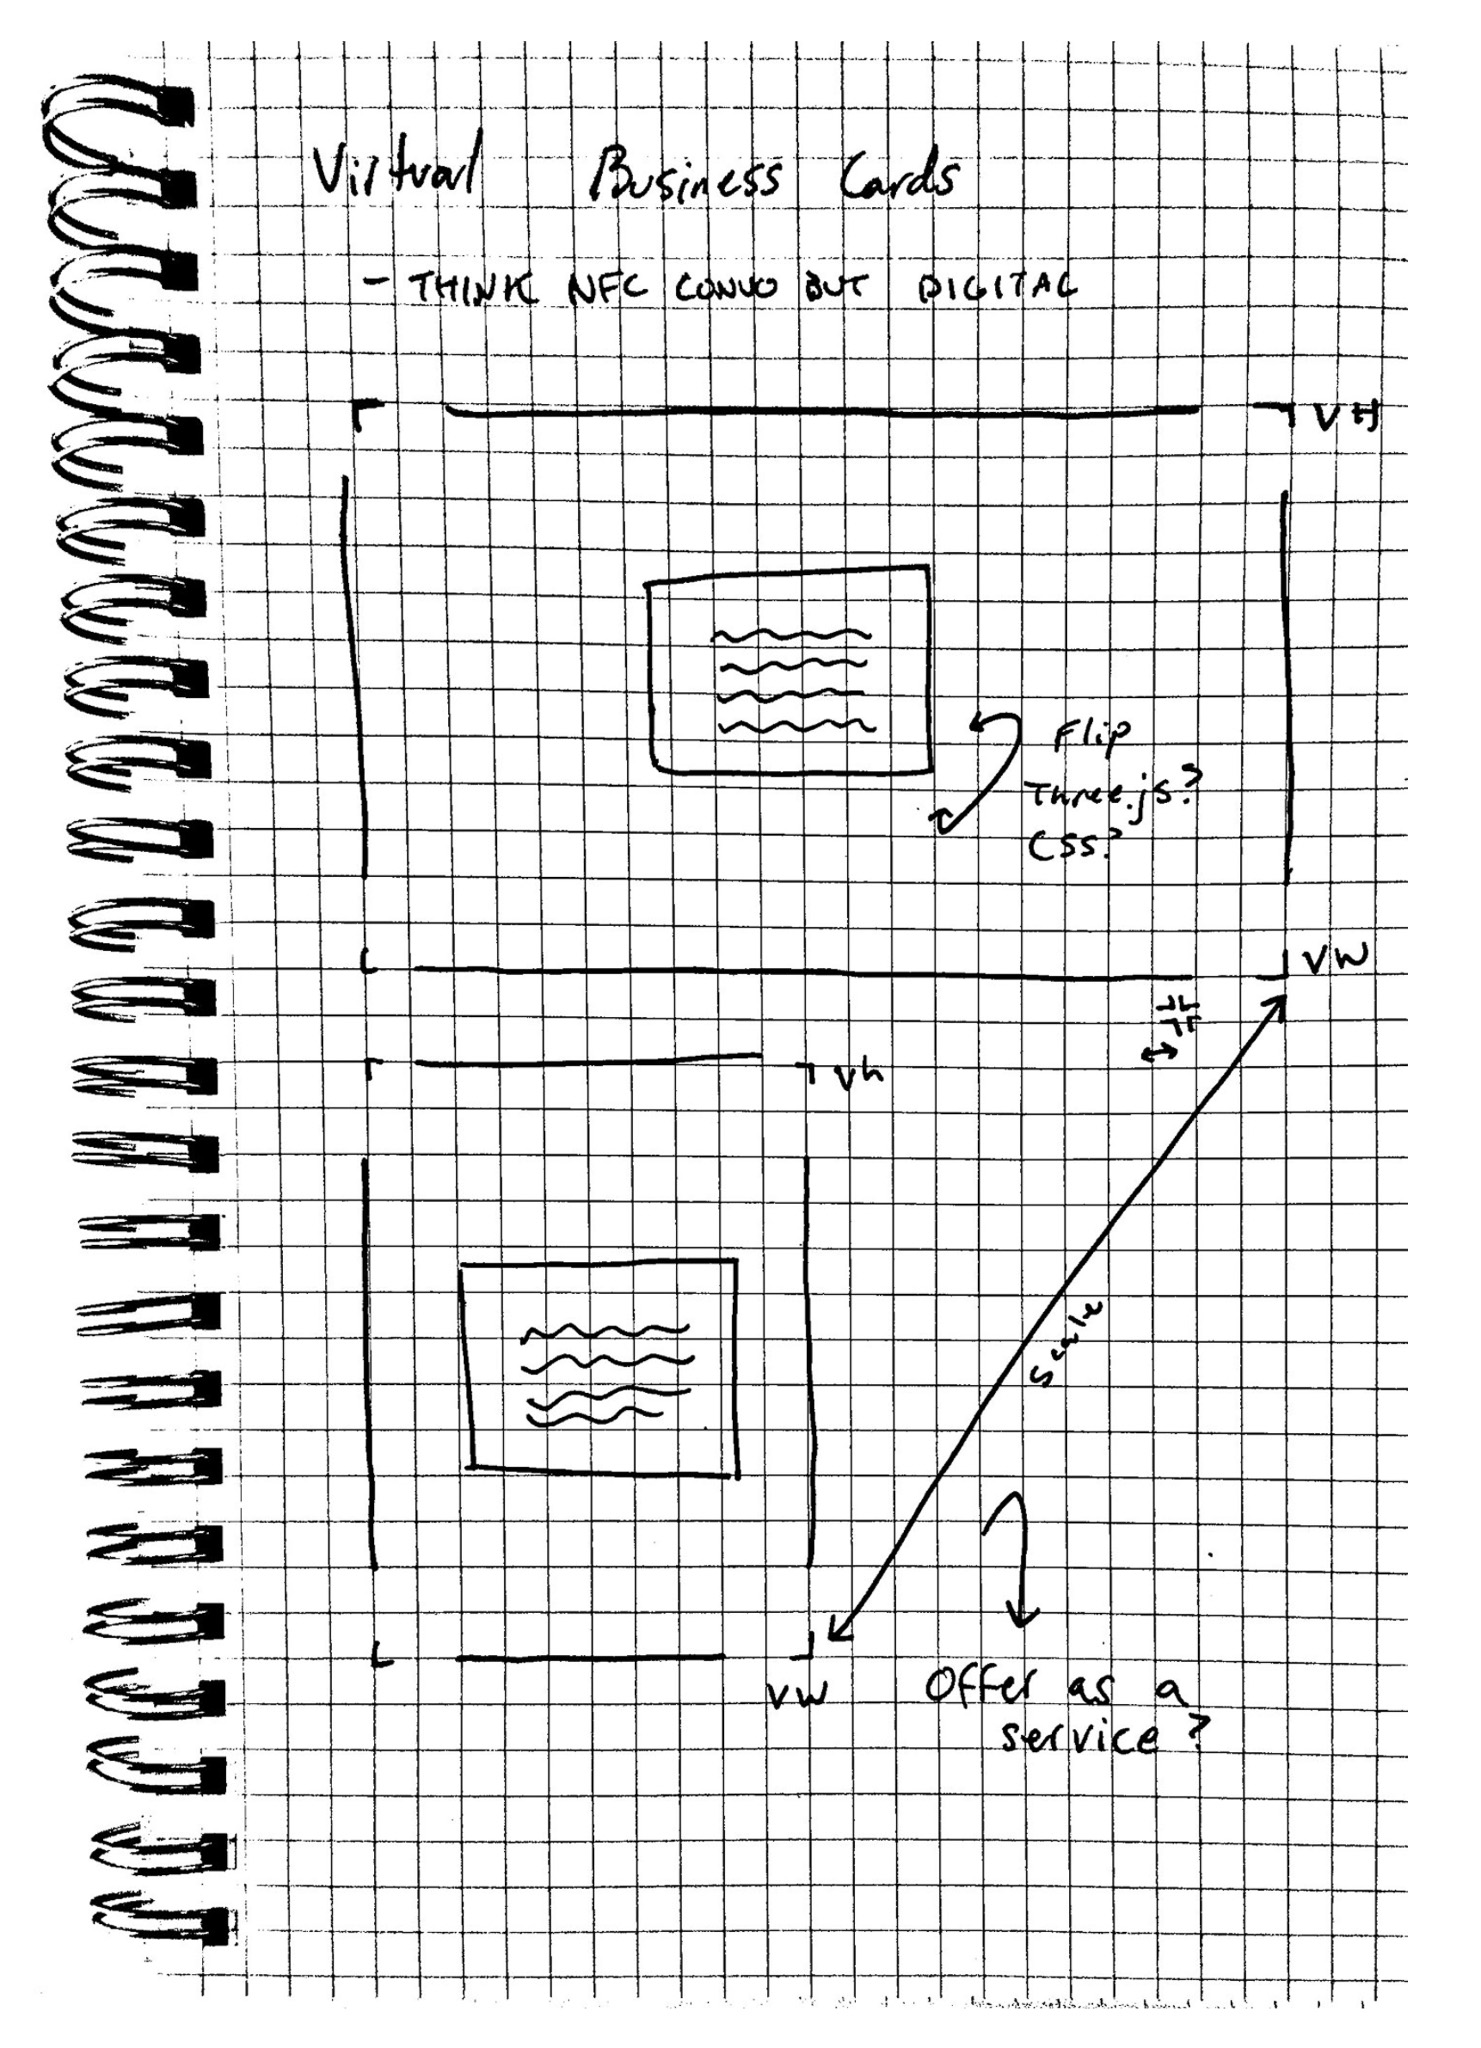 Virtual Business Cards
- THINK NFC CONVO BUT DIGITAL
VH
Flip
Three.js?
CSS?
VW
Vh
Scale
VW
Offer as a
service?